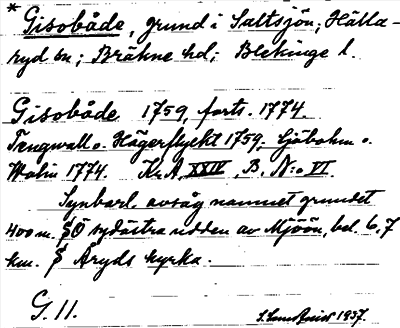 * Gisobåde, grund i Saltsjön; Hälla-
ryd sn; Bräkne hd; Blekinge l.
Gisobåde 1759, forts. 1774.
Tengwall o. Hägerflycht 1759; Sjöbohm o.
Wolin 1774. Kr. A. XXIV, B, N:o VI.
Synbarl. avsåg namnet grundet
400 m. SÖ sydöstra udden av Mjöön, bel. 6,7
km. S Åryds kyrka.
G. 11. 1937.